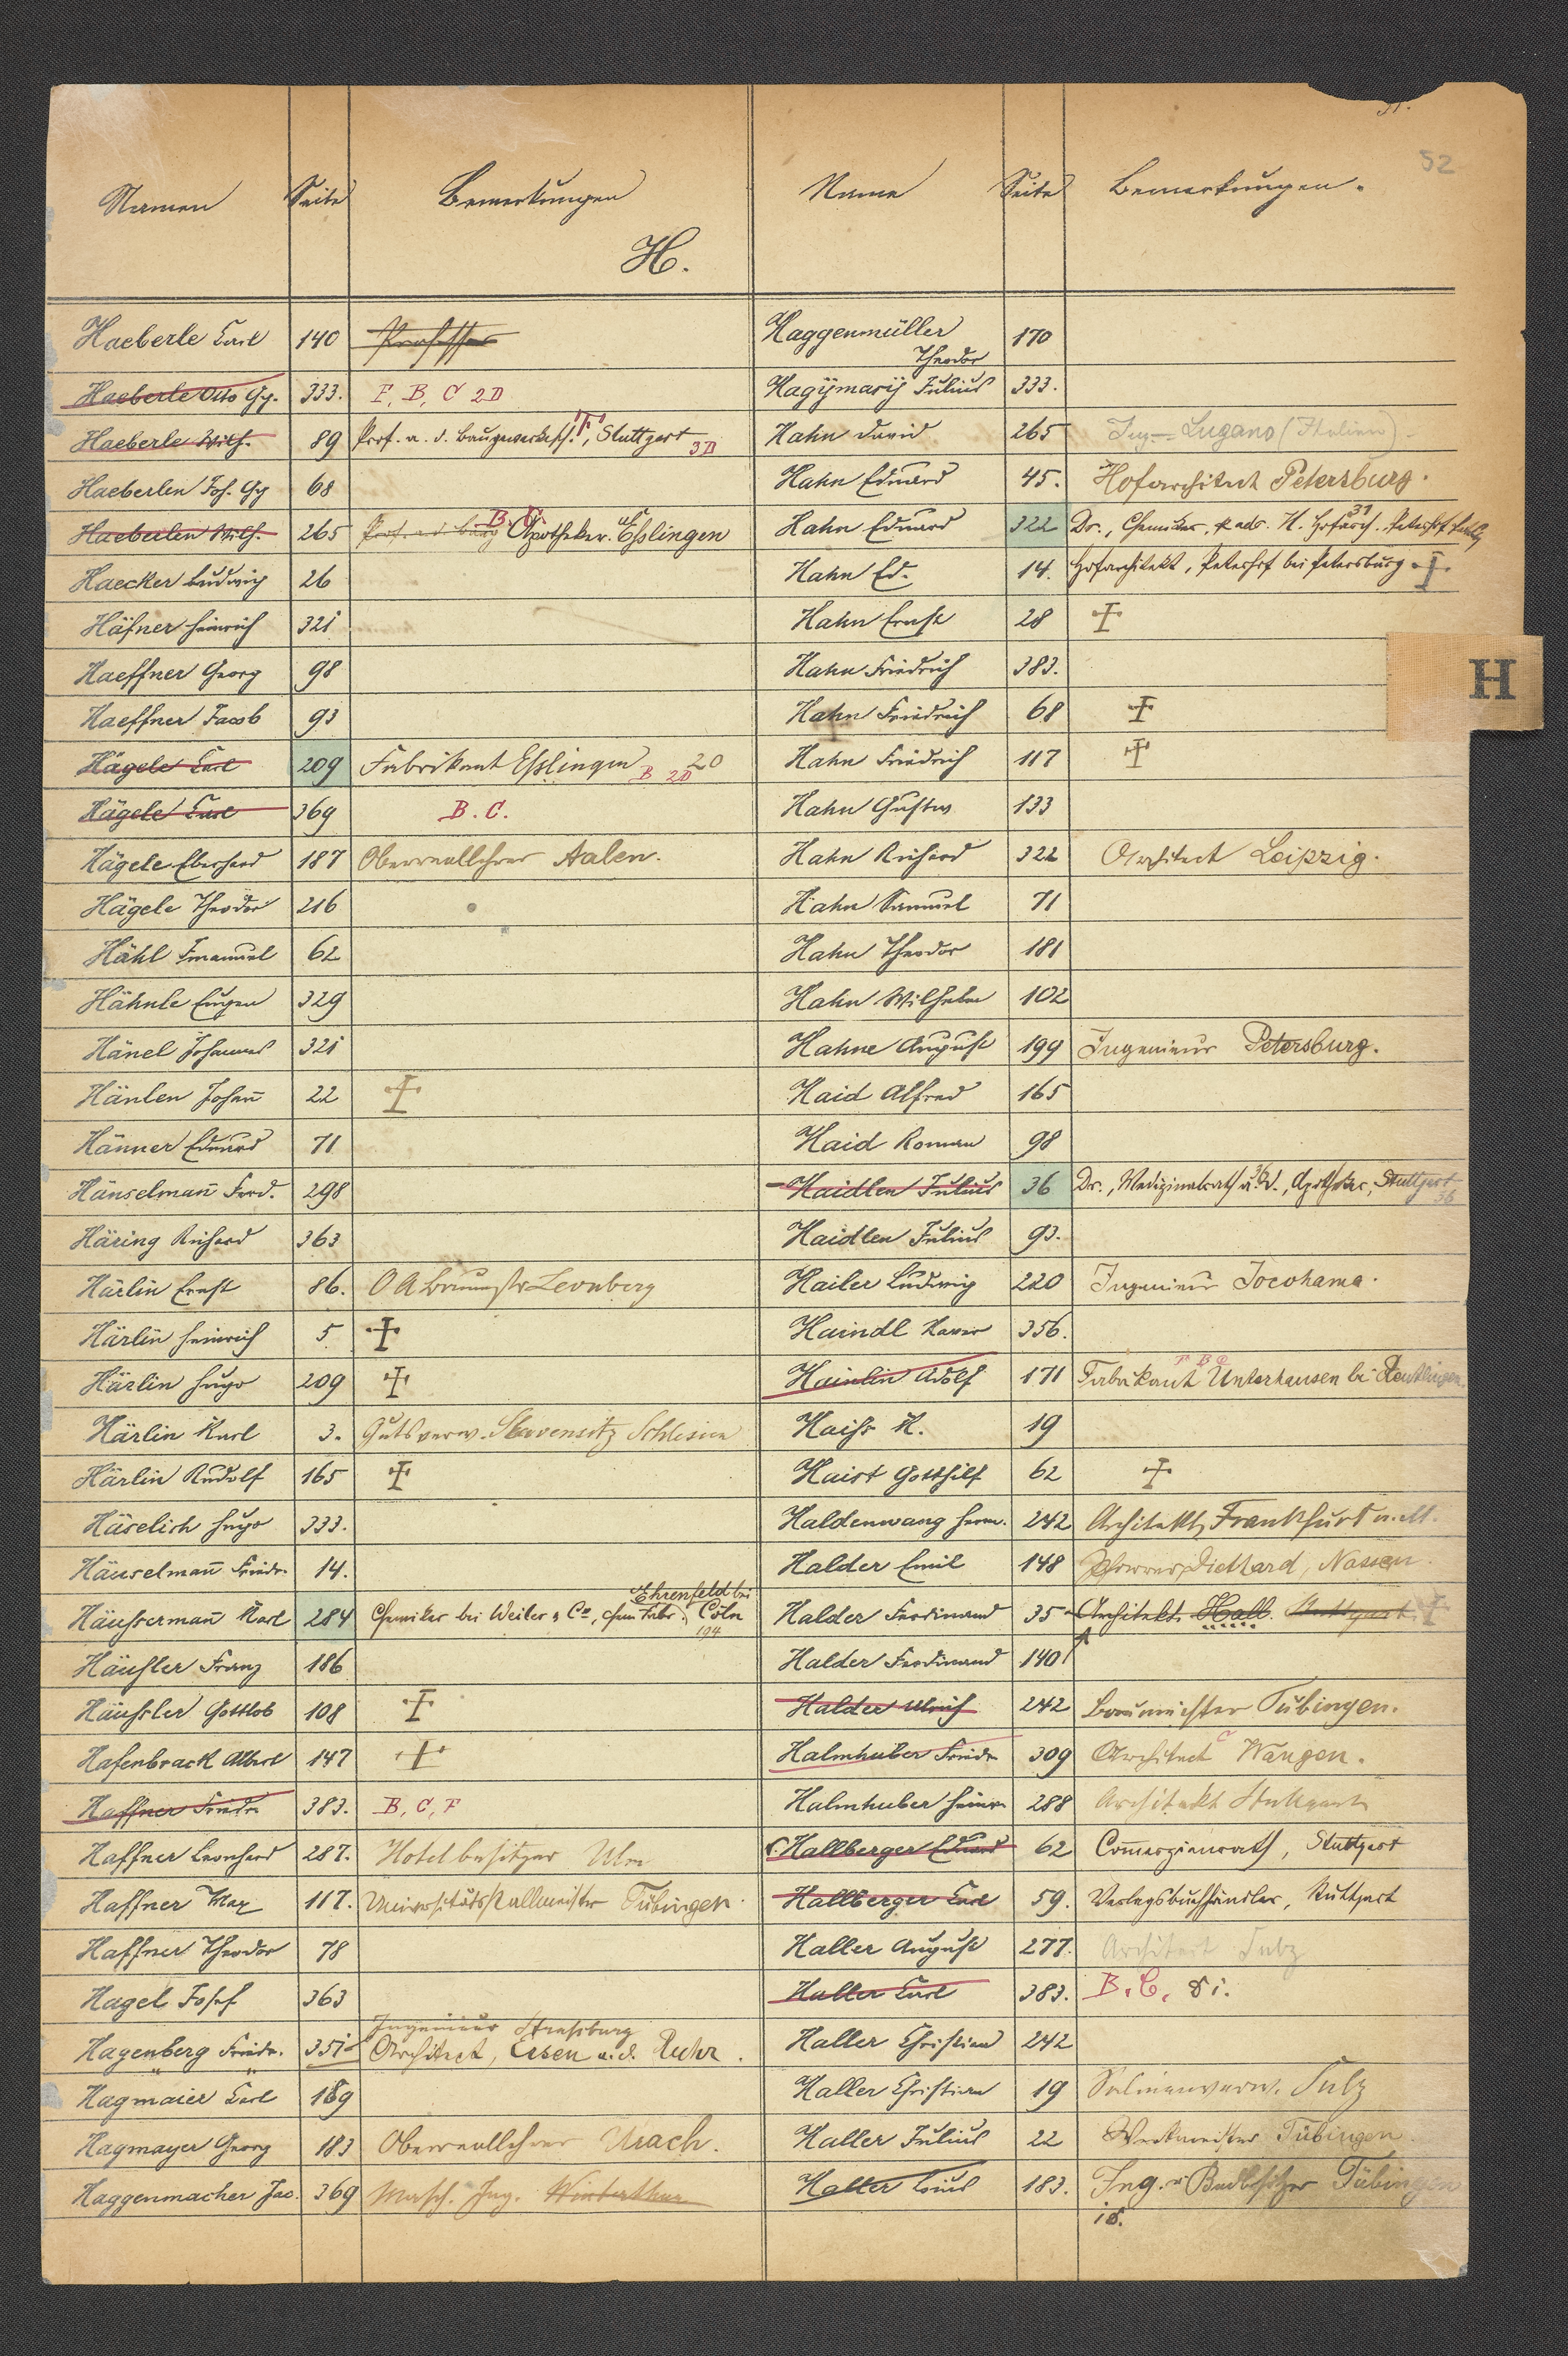 52
Namen Seite Bemerkungen
H.
Haeberle Carl 140 Professor
Haeberle Otto Gg. 333. F, B, C 2D
Haeberle Wilh. 89 Prof. a. d. Baugewerksch. F, Stuttgart 3D
Haeberlen Joh. Gg 68
Haeberlen Wilh. 265 B. C. Apotheker. Eßlingen
Haecker Ludwig 26
Häfner Heinrich 321
Haeffner Georg 98
Haeffner Jacob 93
Hägele Carl 209 Fabrikant Eßlingen B 2D 20
Hägele Carl 369 B. C.
Hägele Eberhard 187 Oberreallehrer Aalen.
Hägele Theodor 216
Hähl Emanuel 62
Hähnle Eugen 329
Hänel Johannes 321
Hänlen Johañ 22 ☩
Hänner Eduard 71
Hänselmañ Ferd. 298
Häring Richard 363
Härlin Ernst 86. O A Baumstr Leonberg
Härlin Heinrich 5 ☩
Härlin Hugo 209 ☩
Härlin Karl 3. Gutsverw. Slavensitz Schlesien
Härlin Rudolf 165 ☩
Häselich Hugo 333.
Häuselmañ Friedr. 14.
Häussermañ Karl 284 Chemiker bei Weiler & Co, chem Fabr. Ehrenfeld bei Cöln 194
Häußler Franz 186
Häußler Gottlob 108 ☩
Hafenbrack Albert 147 ☩
Haffner Friedr. 383. B, C, F
Haffner Leonhard 287. Hotelbesitzer Ulm
Haffner Max 117. Universitätsstallmeister Tübingen.
Haffner Theodor 78
Hagel Josef 363
Ingenieur Straßburg
Hagenberg Friedr. 351 Architect, Essen a. d. Ruhr.
Hagmaier Carl 189
Hagmayer Georg 183 Oberreallehrer Urach.
Haggenmacher Jac. 369 Masch. Ing. Winterthur
Name Seite Bemerkungen.
Haggenmüller Theodor 170
Hagÿmasÿ Julius 333.
Hahn David 265 Ing. Lugano (Italien).
Hahn Eduard 45. Hofarchitect Petersburg.
Hahn Eduard 322 Dr., Chemiker, 31
Hahn Ed. 14. Hofarchitekt, Peterhof bei Petersburg ☩
Hahn Ernst 28 ☩
Hahn Friedrich 383.
H
Hahn Friedrich 68 ☩
Hahn Friedrich 117 ☩
Hahn Gustav 133
Hahn Richard 322 Architect Leipzig.
Hahn Samuel 71
Hahn Theodor 181
Hahn Wilhelm 102
Hahne August 199 Ingenieur Petersburg.
Haid Alfred 165
Haid Roman 98
Haidlen Julius 36 Dr., Medizinalrath u. Apotheker, Stuttgart 36
Haidlen Julius 93.
Hailer Ludwig 220 Ingenieur Jocohama.
Haindl Xaver 356.
Hainlin Adolf 171 F B C Fabrikant Unterhausen bei Reutlingen
Haiß K. 19
Haist Gotthilf 62 ☩
Haldenwang Herm. 242 Architekt, Frankfurt a. M.
Halder Emil 148 Pfarrer Diethard, Nassau.
Halder Ferdinand 35 Architekt Hall. Stuttgart. ☩
Halder Ferdinand 140
Halder Ulrich 242 Baumeister Tübingen.
Halmhuber Friedr 309 Architect C Wangen.
Halmhuber Heinr. 288 Architekt Stuttgart
Hallberger Eduard 62 Com̃erzienrath, Stuttgart
Hallberger Carl 59. Verlagsbuchhändler, Stuttgart
Haller August 277. Architect Sulz
Haller Carl 383. B. C.
Haller Christian 242
Haller Christian 19 Salinenverw. Sulz
Haller Julius 22 Werkmeister Tübingen.
Haller Louis 183. Ing. u. Badbesitzer Tübingen
18.